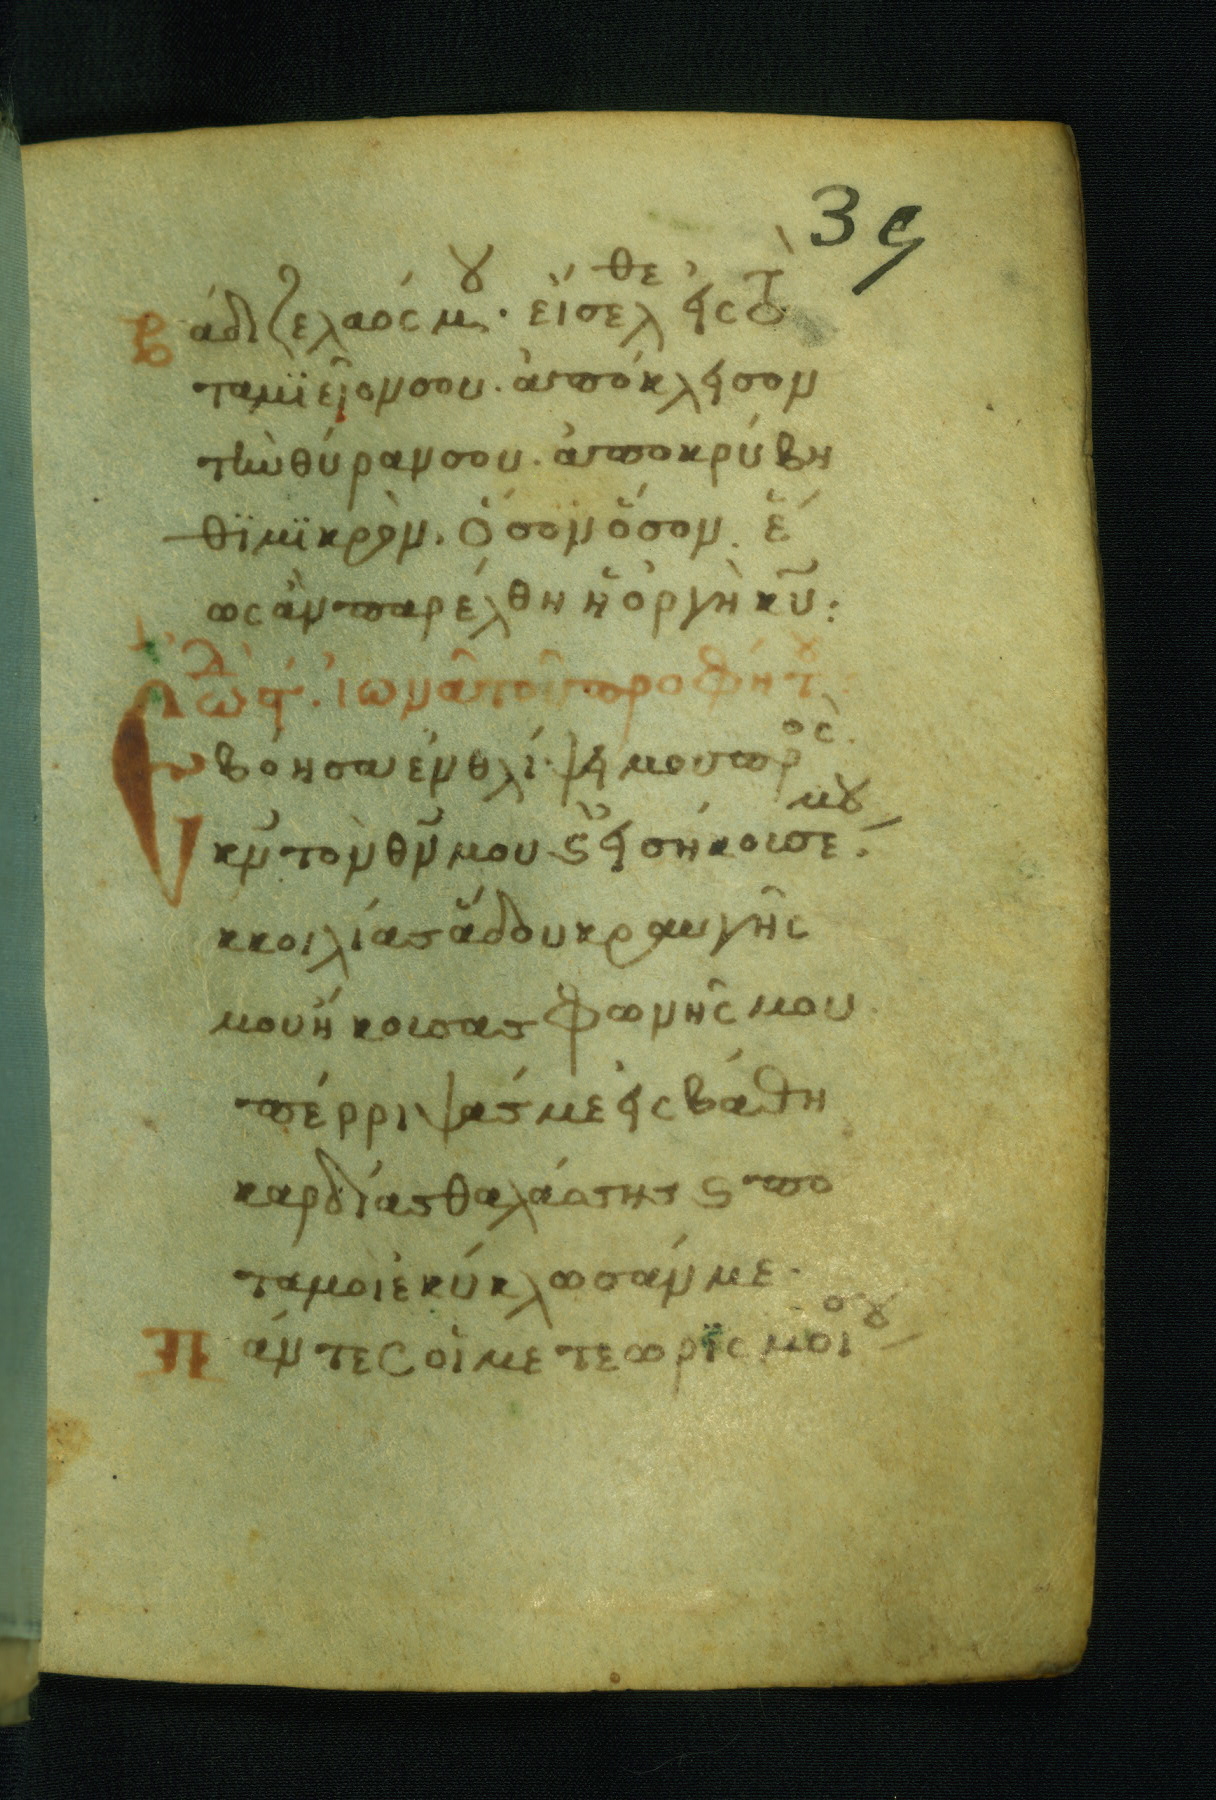 39
Βάδιζε λαός μου· εἴσελθε εἰς τὸ
ταμϊεῖον σου· ἀπόκλεισον
τὴν θύραν σου· ἀποκρύβη
θϊ μϊκρὸν· ὅσον ὅσον. ἕ
ως ἂν παρέλθη ἡ ὀργὴ κῡ:
ὠδ ϛ. ἰωνᾶ τοῦ προφήτου
Ἐβόησα ἐν θλίψει μου πρὸς
κν̄ τὸν θν̄ μου ϗ εἰσήκουσέ μου·
κ κοιλίας ἅδου κραυγῆς
μου ἤκουσας φωνῆς μου
πέρριψάς με εἰς βάθη
καρδίας θαλάσσης ϗ πο
ταμοὶ ἐκύκλωσάν με·
Πάντες οἱ μετεωρϊσμοί σου